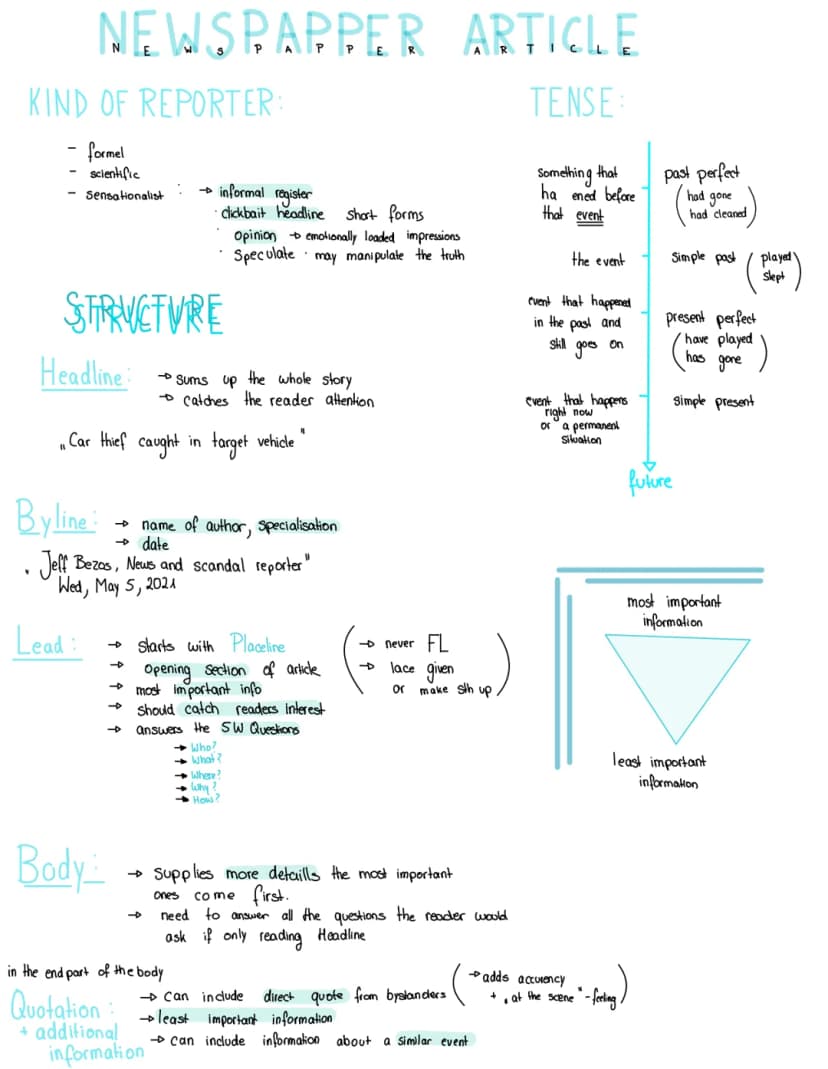 NEWSPAPPER ARTICLE
NEWSPAPPER ARTICLE
KIND OF REPORTER:
- formel
- scientific
- sensationalist : → informal register
· clickbait headline short forms
opinion → emotionally loaded impressions
· Speculate · may manipulate the truth
TENSE:
something that
ha ened before
that event
past perfect
(had gone
had cleaned)
the event
simple past (played
slept)
event that happened
in the past and
still goes on
present perfect
(have played
has gone)
event that happens
right now
or a permanent
situation
simple present
future
STRUCTURE
Headline: → sums up the whole story
→ catches the reader attention
„Car thief caught in target vehicle"
Byline: → name of author, specialisation
→ date
„Jeff Bezos, News and scandal reporter"
Wed, May 5, 2021
Lead: → starts with Placeline
→ opening section of article
→ most important info
→ should catch readers interest
→ answers the 5W Questions
→ Who?
→ What?
→ Where?
→ Why?
→ How?
(→ never FL
→ lace given
or make sth up)
most important
information
least important
information
Body: → supplies more detaills the most important
ones come first.
→ need to answer all the questions the reader would
ask if only reading Headline
in the end part of the body
Quotation:
+ additional
information
→ can include direct quote from bystanders (→ adds accurency
+ „at the scene"-feeling)
→ least important information
→ can include information about a similar event